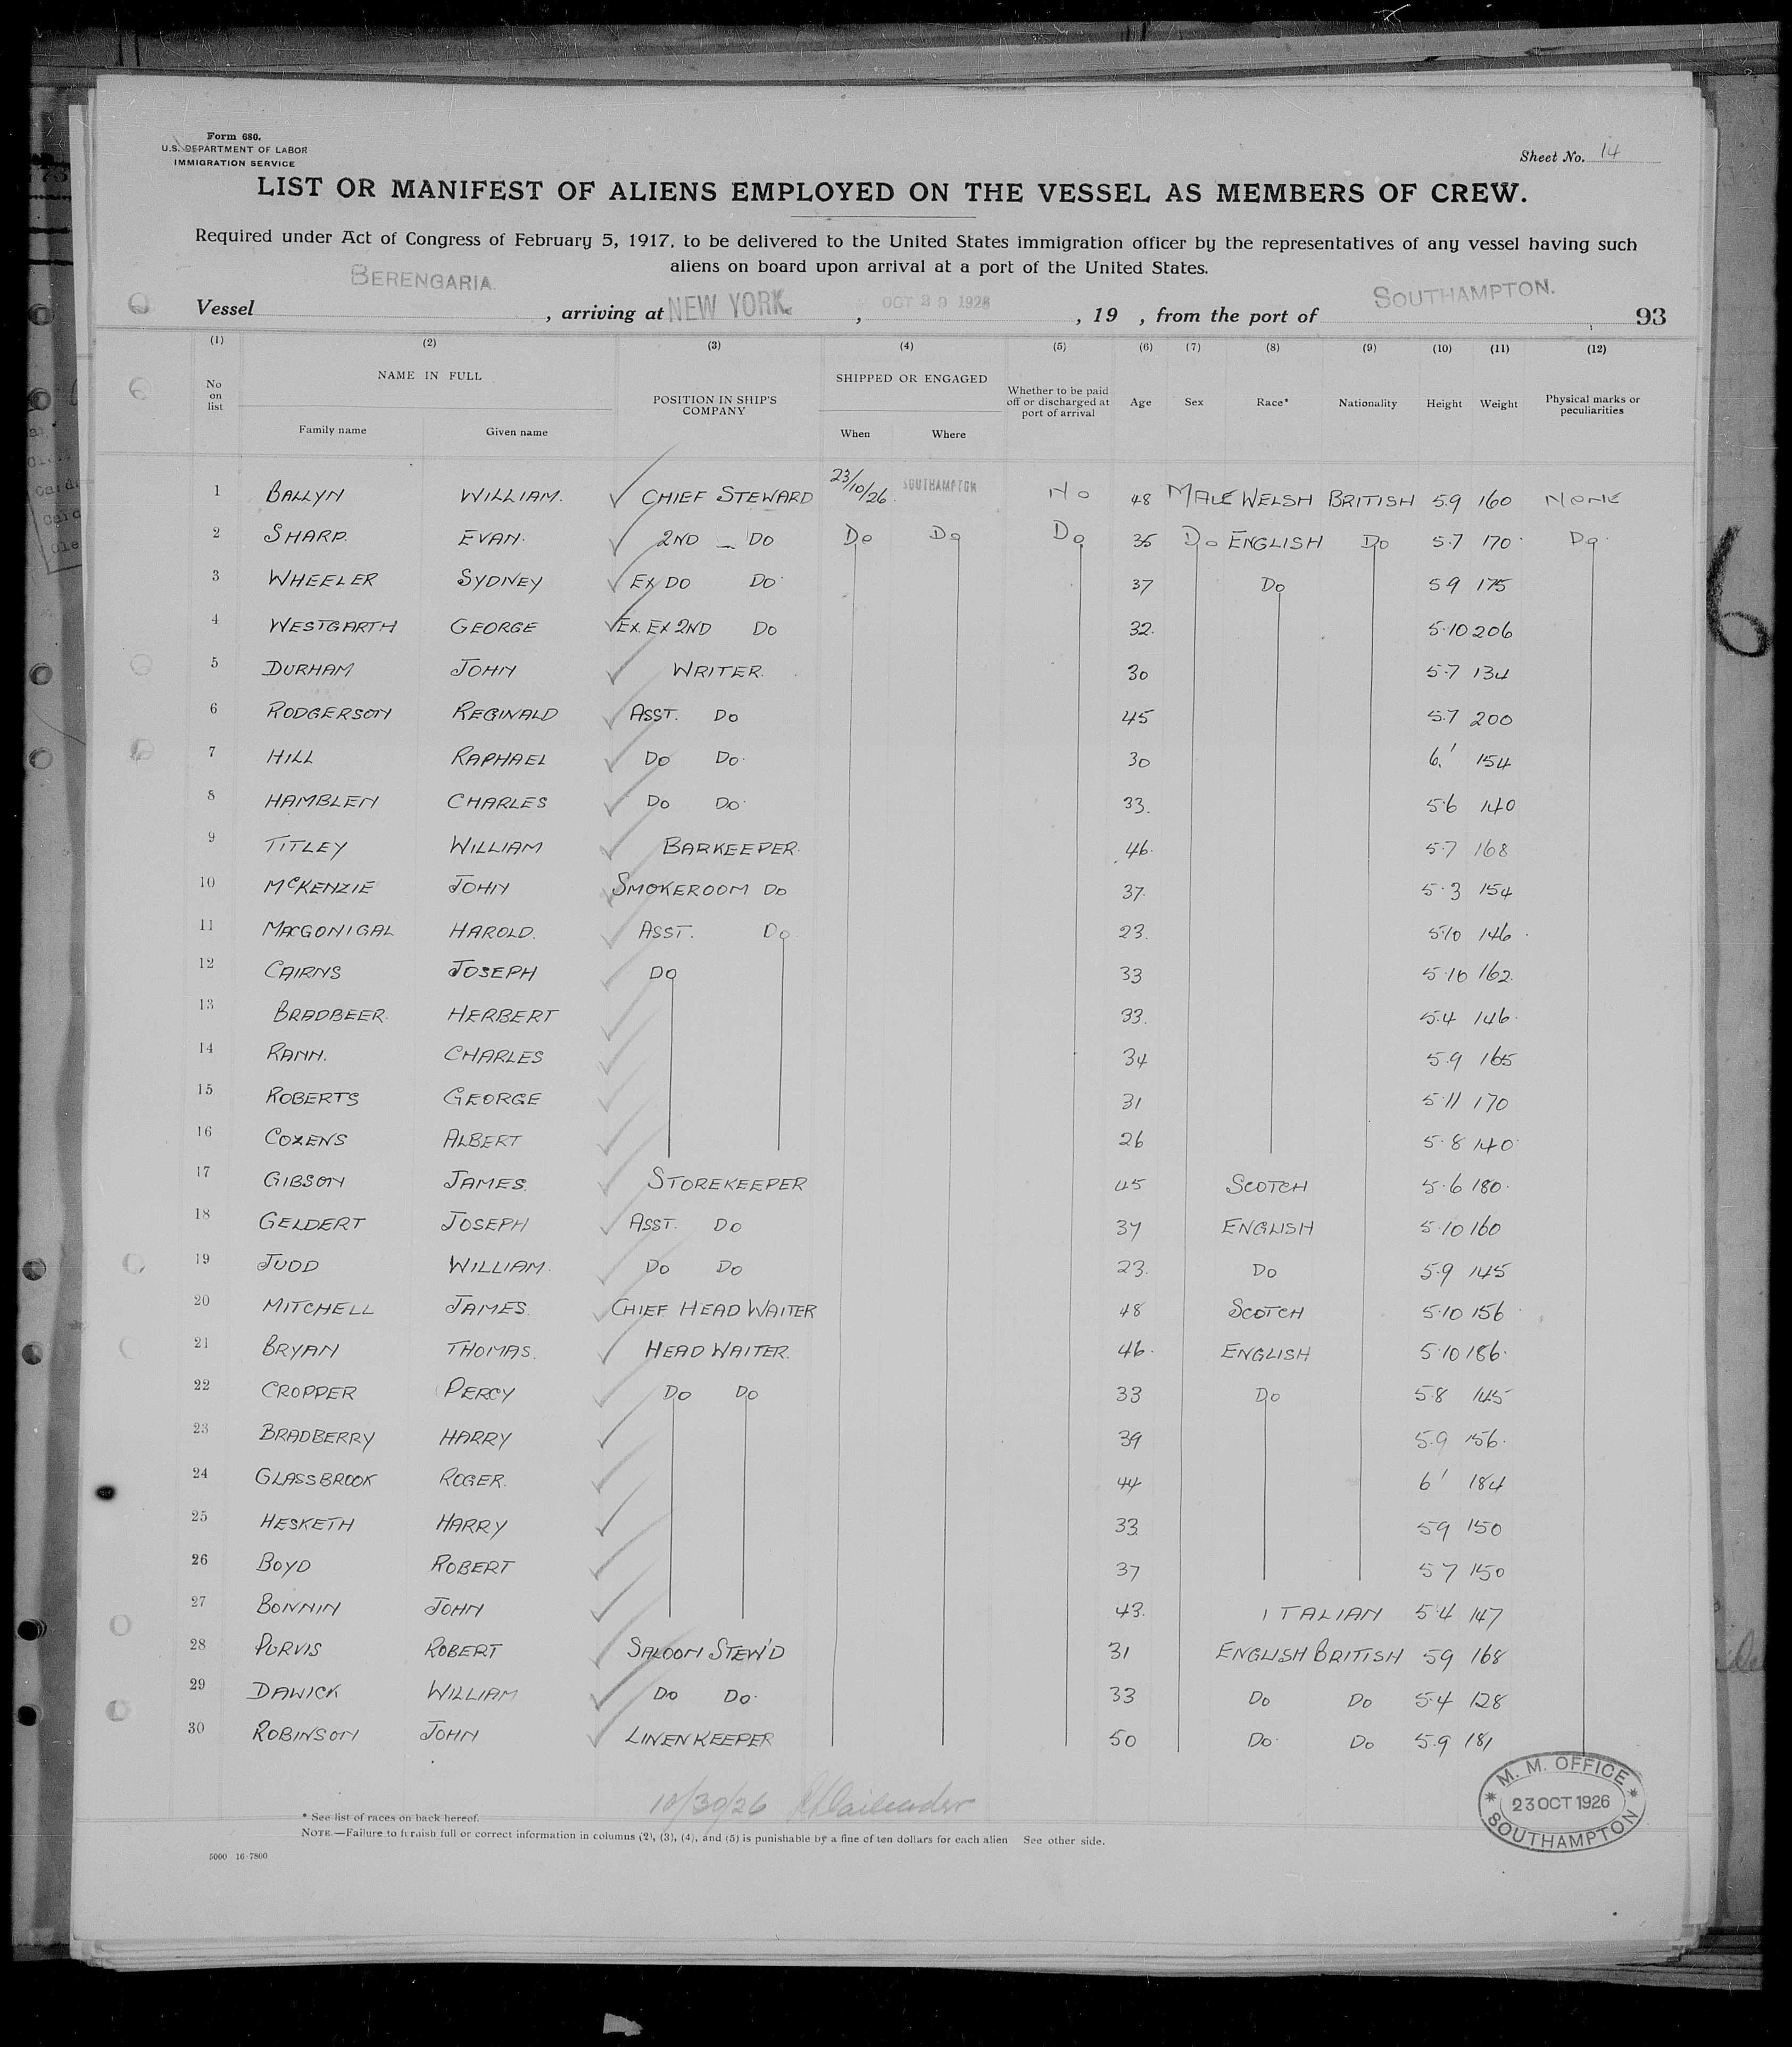 Form 680.
U.S. DEPARTMENT OF LABOR
IMMIGRATION SERVICE
Sheet No. 14
LIST OR MANIFEST OF ALIENS EMPLOYED ON THE VESSEL AS MEMBERS OF CREW.
Required under Act of Congress of February 5, 1917, to be delivered to the United States immigration officer by the representatives of any vessel having such
aliens on board upon arrival at a port of the United States.
Vessel BERENGARIA. , arriving at NEW YORK. , OCT 29 1926 , 19 , from the port of SOUTHAMPTON. 93
(1) (2) (3) (4) (5) (6) (7) (8) (9) (10) (11) (12)
No on list NAME IN FULL Family name Given name POSITION IN SHIP'S COMPANY SHIPPED OR ENGAGED When Where Whether to be paid off or discharged at port of arrival Age Sex Race* Nationality Height Weight Physical marks or peculiarities
1 BALLYN WILLIAM. CHIEF STEWARD 23/10/26. SOUTHAMPTON No 48 MALE WELSH BRITISH 5.9 160 NONE
2 SHARP. EVAN. 2ND _ DO Do Do Do 35 Do ENGLISH Do 5.7 170 Do
3 WHEELER SYDNEY EX DO DO 37 Do 5 9 175
4 WESTGARTH GEORGE EX. EX 2ND DO 32. 5.10 206
5 DURHAM JOHN WRITER. 30 5.7 134
6 RODGERSON REGINALD ASST. DO 45 5.7 200
7 HILL RAPHAEL DO DO. 30 6' 154
8 HAMBLEN CHARLES DO DO 33. 5.6 140
9 TITLEY WILLIAM BARKEEPER. 46. 5.7 168
10 McKENZIE JOHN SMOKEROOM DO 37. 5.3 154
11 MACGONIGAL HAROLD. ASST. Do 23. 5.10 146
12 CAIRNS JOSEPH DO 33 5.10 162.
13 BRADBEER. HERBERT 33. 5.4 146.
14 RANN. CHARLES 34 5.9 165
15 ROBERTS GEORGE 31 5.11 170
16 COXENS ALBERT 26 5.8 140
17 GIBSON JAMES. STOREKEEPER 45 SCOTCH 5.6 180.
18 GELDERT JOSEPH ASST. DO 37 ENGLISH 5.10 160
19 JUDD WILLIAM. DO DO 23. DO 5.9 145
20 MITCHELL JAMES. CHIEF HEAD WAITER 48 SCOTCH 5.10 156
21 BRYAN THOMAS. HEAD WAITER. 46. ENGLISH 5.10 186.
22 CROPPER PERCY DO DO 33 DO 5.8 145
23 BRADBERRY HARRY 39 5.9 156.
24 GLASSBROOK ROGER. 44 6' 184
25 HESKETH HARRY 33. 5 9 150
26 BOYD ROBERT 37 5 7 150
27 BONNIN JOHN 43. ITALIAN 5.4 147
28 PURVIS ROBERT SALOON STEW'D 31 ENGLISH BRITISH 5 9 168
29 DAWICK WILLIAM DO DO. 33 DO DO 5.4 128
30 ROBINSON JOHN LINENKEEPER 50 DO. DO 5.9 181
10/30/26
* See list of races on back hereof.
NOTE.—Failure to furnish full or correct information in columns (2), (3), (4), and (5) is punishable by a fine of ten dollars for each alien See other side.
5000 16-7800
M. M. OFFICE
23 OCT 1926
SOUTHAMPTON
6